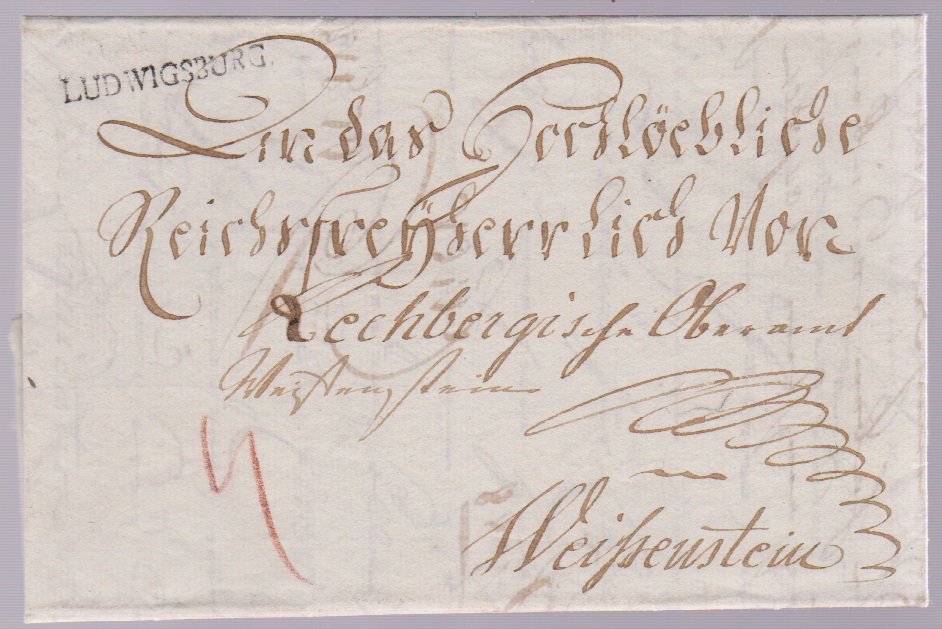 LUDWIGSBURG.
An das Hochlöebliche
Reichsfreÿherrlich Von
Rechbergische Oberamt
Weissenstein
4
Weissenstein